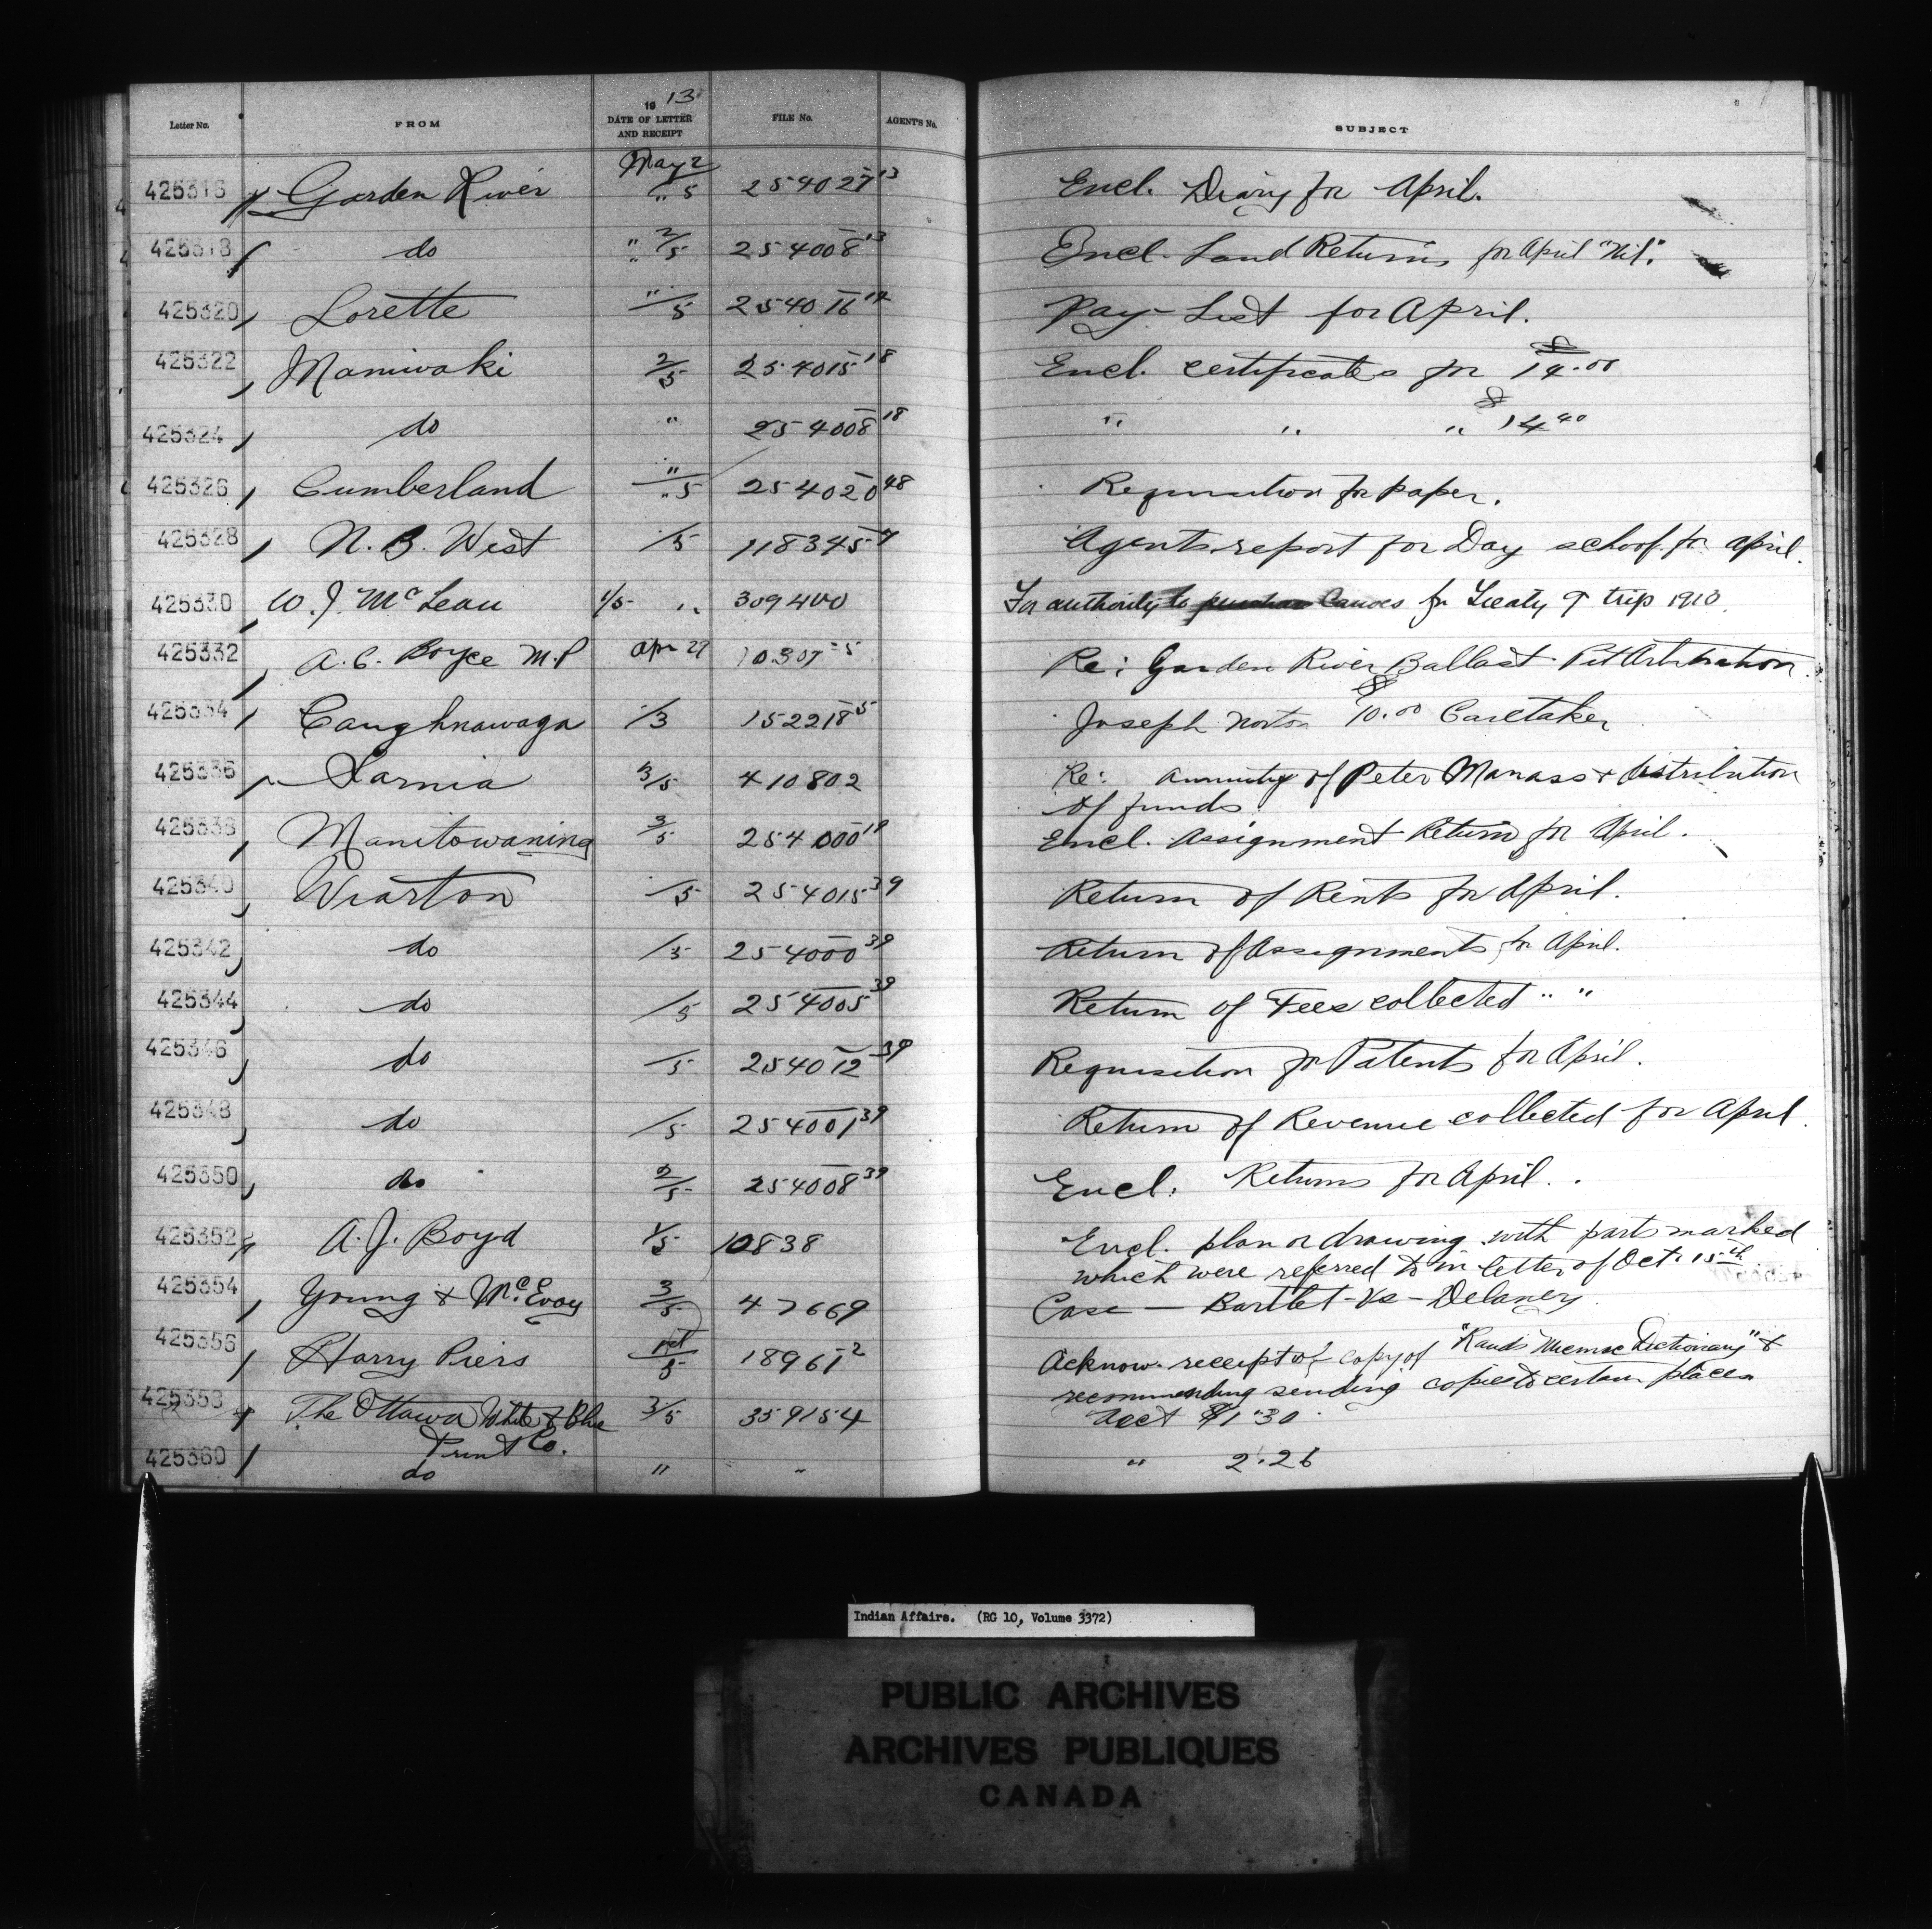 Letter No. FROM 1913 DATE OF LETTER AND RECEIPT FILE No. AGENT'S No. SUBJECT
425316 Garden River May 2 " 5 254027-13 Encl. Diary for April.
425318 do " 2/5 254008-13 Encl. Land Returns for April "Nil".
425320 Lorette "/5 254016 Pay-List for April.
425322 Maniwaki 2/5 254015-18 Encl. certificates for $14.00
425324 do " 254008-18 " " " $14.40
425326 Cumberland "/5 254020-48 Requisition for paper.
425328 N. B. West /5 118345 Agents report for Day school for April.
425330 W. J. McLean 1/5 " 309400 For authority to purchase Canoes for Treaty 9 trip 1910.
425332 A. C. Boyce M.P Apr 29 10307-5 Re: Garden River Ballast Pit Arbitration.
425334 Caughnawaga /3 152218-5 Joseph Norton $10.00 Caretaker
425336 Sarnia 3/5 410802 Re: Annuity of Peter Manass & distribution
of funds.
425338 Manitowaning 3/5 254000-19 Encl. Assignment Return for April.
425340 Wiarton /5 254015-39 Return of Rents for April.
425342 do /5 254000-39 Return of Assignments for April.
425344 do /5 254005-39 Return of Fees collected " "
425346 do /5 254012-39 Requisition for Patents for April.
425348 do /5 254001-39 Return of Revenue collected for April.
425350 do 2/5 254008-39 Encl. Returns for April.
425352 A. J. Boyd 1/5 10838 Encl. plan or drawing with parts marked
which were referred to in letter of Oct. 15th
425354 Young & McEvoy 3/5 47669 Case — Bartlet - Vs - Delaney
425356 Harry Piers 1st/5 18961-2 Acknow. receipt of copy of "Rands Micmac Dictionary" &
recommending sending copies to certain places
425358 The Ottawa White & Blue 3/5 359154 Acct $1.30
Print Co.
425360 do " " " 2.26
Indian Affairs. (RG 10, Volume 3372)
PUBLIC ARCHIVES
ARCHIVES PUBLIQUES
CANADA